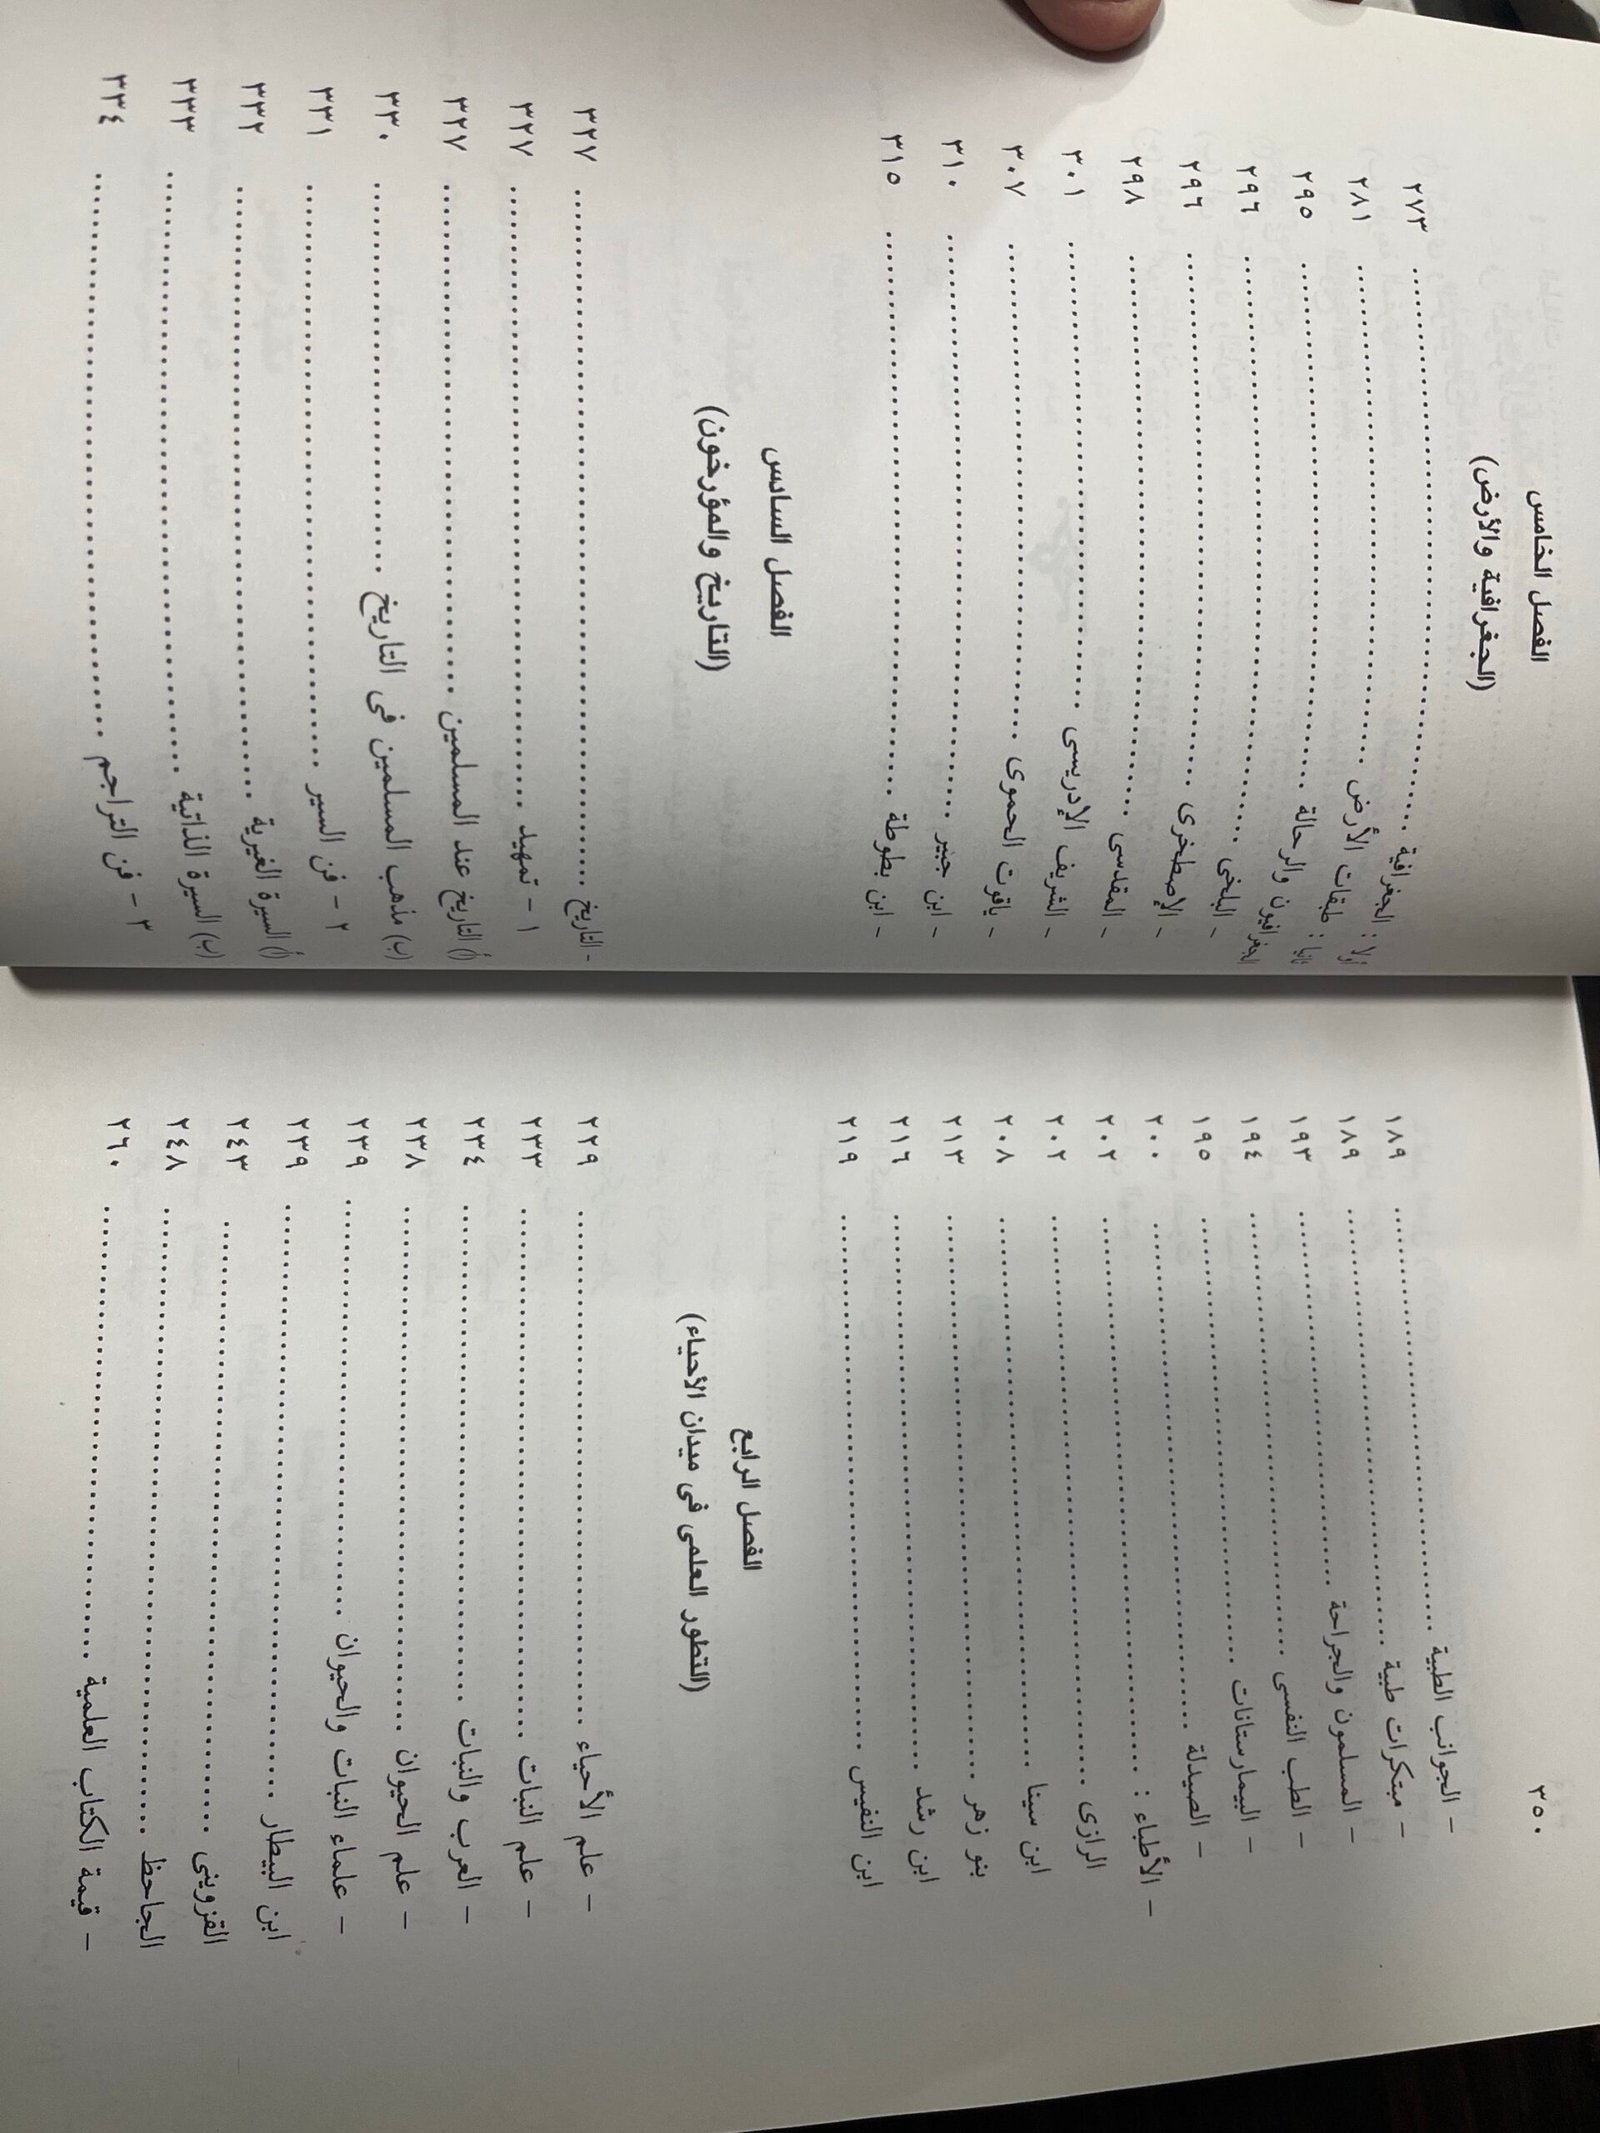 ٣٥٠
- الجوانب الطبية ........ ١٨٩
- مبتكرات طبية ........ ١٨٩
- المسلمون والجراحة ........ ١٩٣
- الطب النفسى ........ ١٩٤
- البيمارستانات ........ ١٩٥
- الصيدلة ........ ٢٠٠
- الأطباء : ........ ٢٠٢
الرازى ........ ٢٠٢
ابن سينا ........ ٢٠٨
بنو زهر ........ ٢١٣
ابن رشد ........ ٢١٦
ابن النفيس ........ ٢١٩
الفصل الرابع
(التطور العلمى فى ميدان الأحياء)
- علم الأحياء ........ ٢٢٩
- علم النبات ........ ٢٣٣
- العرب والنبات ........ ٢٣٤
- علم الحيوان ........ ٢٣٨
- علماء النبات والحيوان ........ ٢٣٩
ابن البيطار ........ ٢٣٩
القزوينى ........ ٢٤٣
الجاحظ ........ ٢٤٨
- قيمة الكتاب العلمية ........ ٢٦٠
الفصل الخامس
(الجغرافية والأرض)
أولا : الجغرافية ........ ٢٧٣
ثانيا : طبقات الأرض ........ ٢٨١
الجغرافيون والرحالة ........ ٢٩٥
- البلخى ........ ٢٩٦
- الإصطخرى ........ ٢٩٦
- المقدسى ........ ٢٩٨
- الشريف الإدريسى ........ ٣٠١
- ياقوت الحموى ........ ٣٠٧
- ابن جبير ........ ٣١٠
- ابن بطوطة ........ ٣١٥
الفصل السادس
(التاريخ والمؤرخون)
- التاريخ ........ ٣٢٧
١ - تمهيد ........ ٣٢٧
(أ) التاريخ عند المسلمين ........ ٣٢٧
(ب) مذهب المسلمين فى التاريخ ........ ٣٣٠
٢ - فن السير ........ ٣٣١
(أ) السيرة الغيرية ........ ٣٣٢
(ب) السيرة الذاتية ........ ٣٣٣
٣ - فن التراجم ........ ٣٣٤